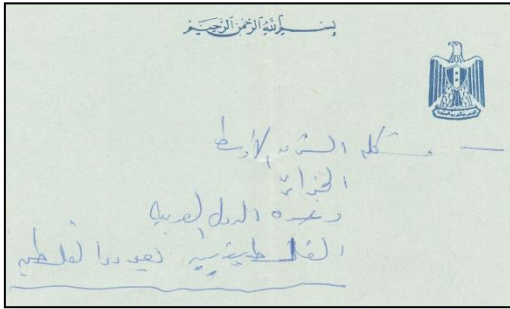 بسم الله الرحمن الرحيم
— مشكلة الشرق الأوسط
الجزائر
وحدة الدول العربية
الفلسطينيين يعودوا لفلسطين